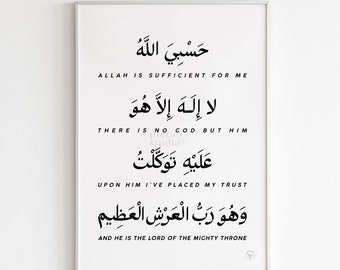 حَسْبِيَ اللَّهُ
ALLAH IS SUFFICIENT FOR ME
لَا إِلَـهَ إِلاَّ هُوَ
THERE IS NO GOD BUT HIM
عَلَيْهِ تَوَكَّلْتُ
UPON HIM I'VE PLACED MY TRUST
وَهُوَ رَبُّ الْعَرْشِ الْعَظِيمِ
AND HE IS THE LORD OF THE MIGHTY THRONE